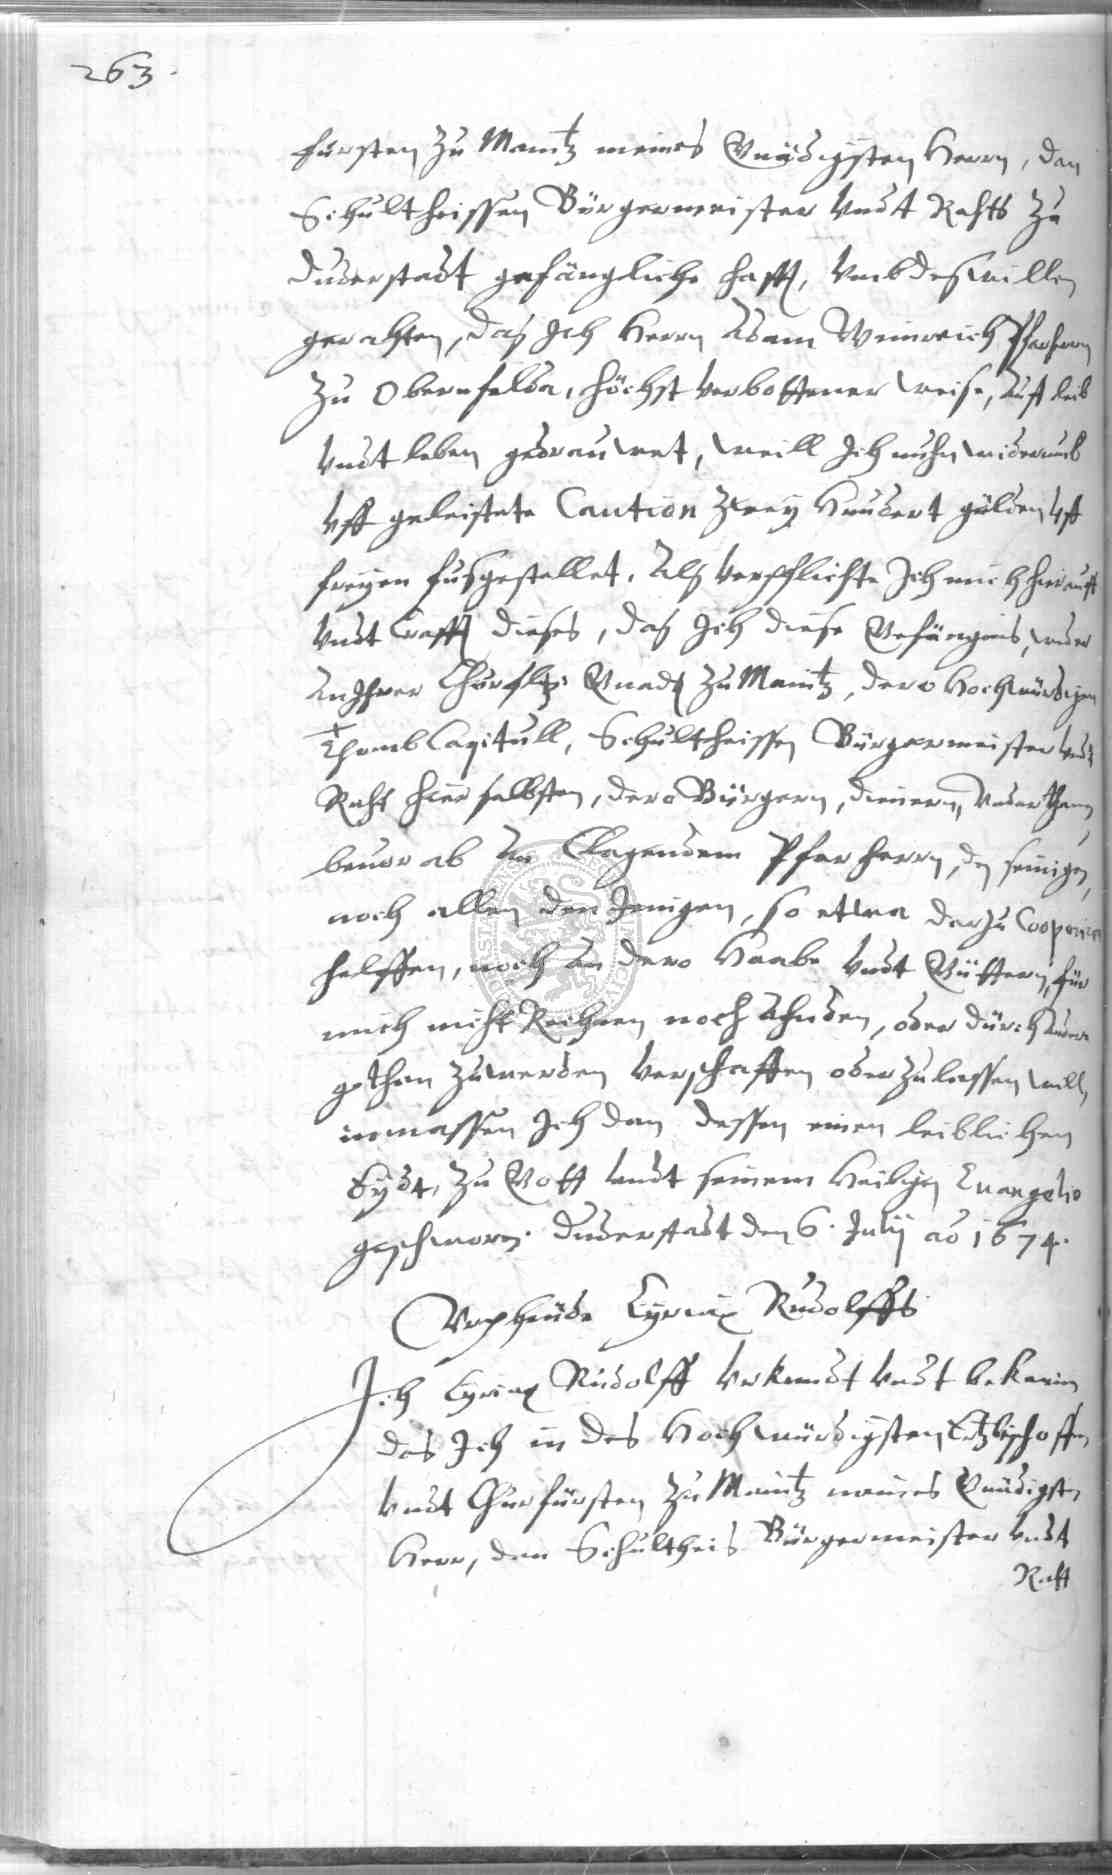 263.
fürsten zu Maintz meines Gnädigsten Herrn, dan
Schultheissen Bürgermeister undt Rahts zu
Duderstadt gefängliche hafft, umb deswillen
gerahten, das Ich Herrn Adam Winreich Pfarherrn
zu Obernfelda, höchst verbottener weise, auff leib
undt leben gedrauwet, weill Ich nuhn widerumb
uff geleistete Caution zwey Hundert gülden uff
freyen fus gestellet, Als verpflichte Ich mich hierauff
undt Crafft dieses, das Ich diese Gefängnis, weder
An Ihrer Churfltz: Gnadt zu Maintz, dero Hochwürdigen
Thomb Capitull, Schultheissen Bürgermeister undt
Raht hier selbsten, dero Bürgern, dienern, Underthanen
bevor ab An Clagendem Pfarherrn, den seinigen,
noch allen den Jenigen, so etwa darzu
helffen, noch An dero Haabe undt Güttern, für
mich nicht Rechnen noch Ahnden, oder dürch Andere
gethan zuwerden verschaffen oder zulassen will,
inmassen Ich dan dessen einen leiblichen
Eydt, zu Gott undt seinem Heiligen Evangelio
geschworn. Duderstadt den 6. Julij ao 1674.
Urpheüde Cyriax Rudolffs
Ich Cyriax Rudolff Urkundt undt bekenne
das Ich in des Hochwürdigsten Ertzbischoffen
undt Churfürsten zu Maintz meines Gnädigsten
Herr, dan Schultheis Bürgermeister undt
Raht